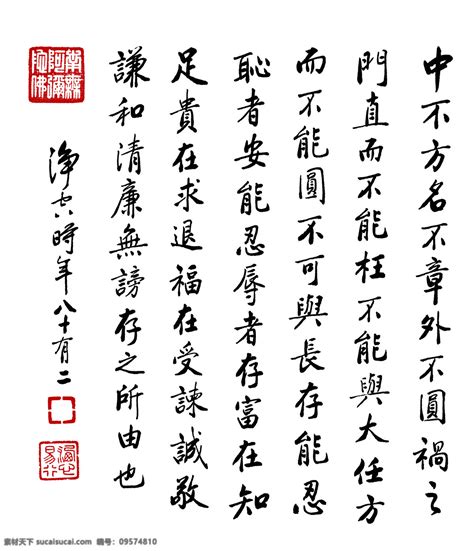 中不方名不章外不圓禍之
門直而不能枉不能與大任方
而不能圓不可與長存能忍
恥者安能忍辱者存富在知
足貴在求退福在受諫誠敬
謙和清廉無謗存之所由也
淨空時年八十有二
南無
阿彌
陀佛
素材天下 sucaisucai.com 编号：09574810